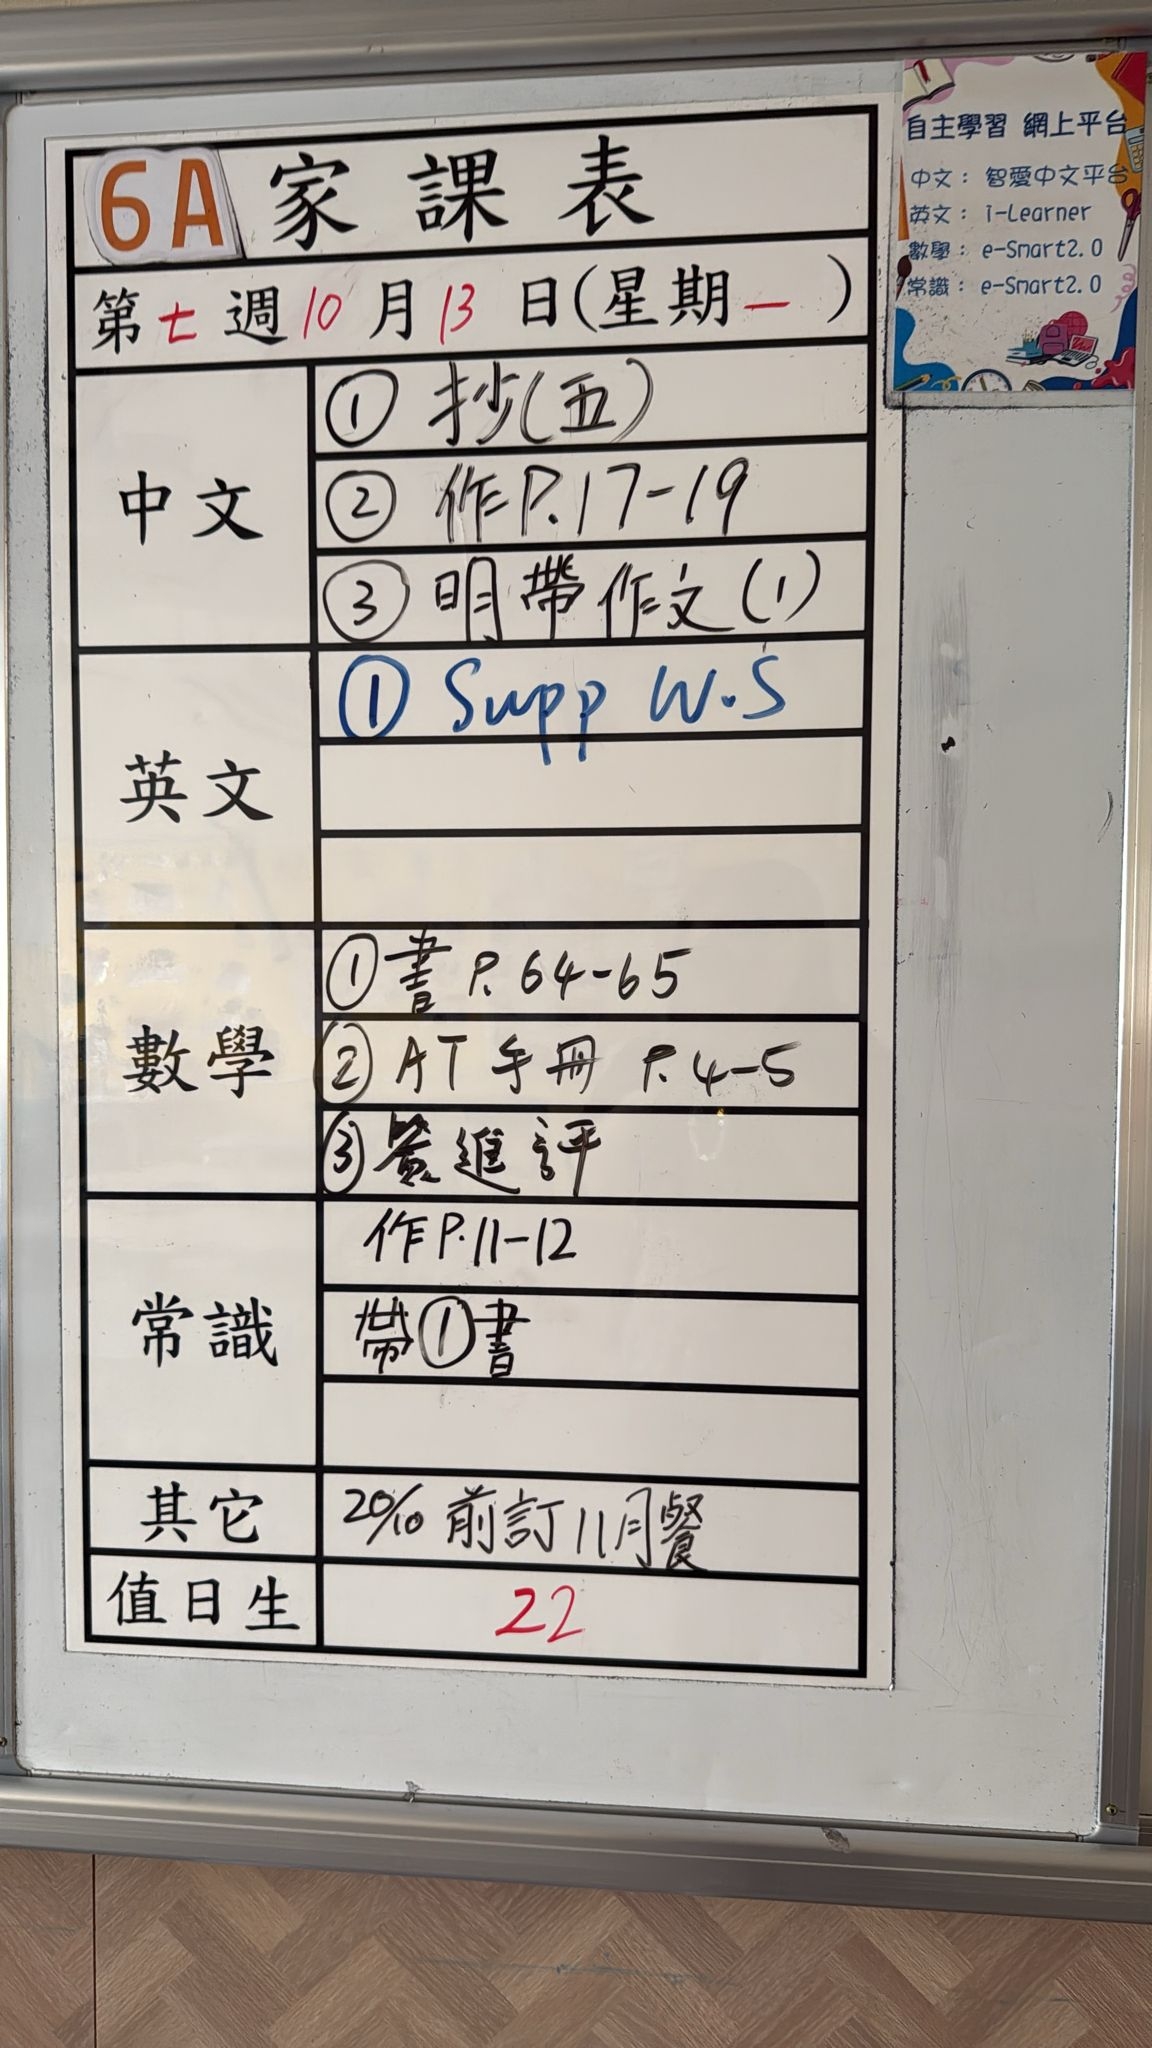 6A 家課表
第七週10月13日(星期一)
中文
① 抄(五)
② 作P.17-19
③ 明帶作文(1)
英文
① Supp W.S
數學
① 書 P.64-65
② AT手冊 P.4-5
③ 簽進評
常識
作P.11-12
帶①書
其它
20/10 前訂11月餐
值日生
22
自主學習 網上平台
中文： 智愛中文平台
英文： i-Learner
數學： e-Smart2.0
常識： e-Smart2.0